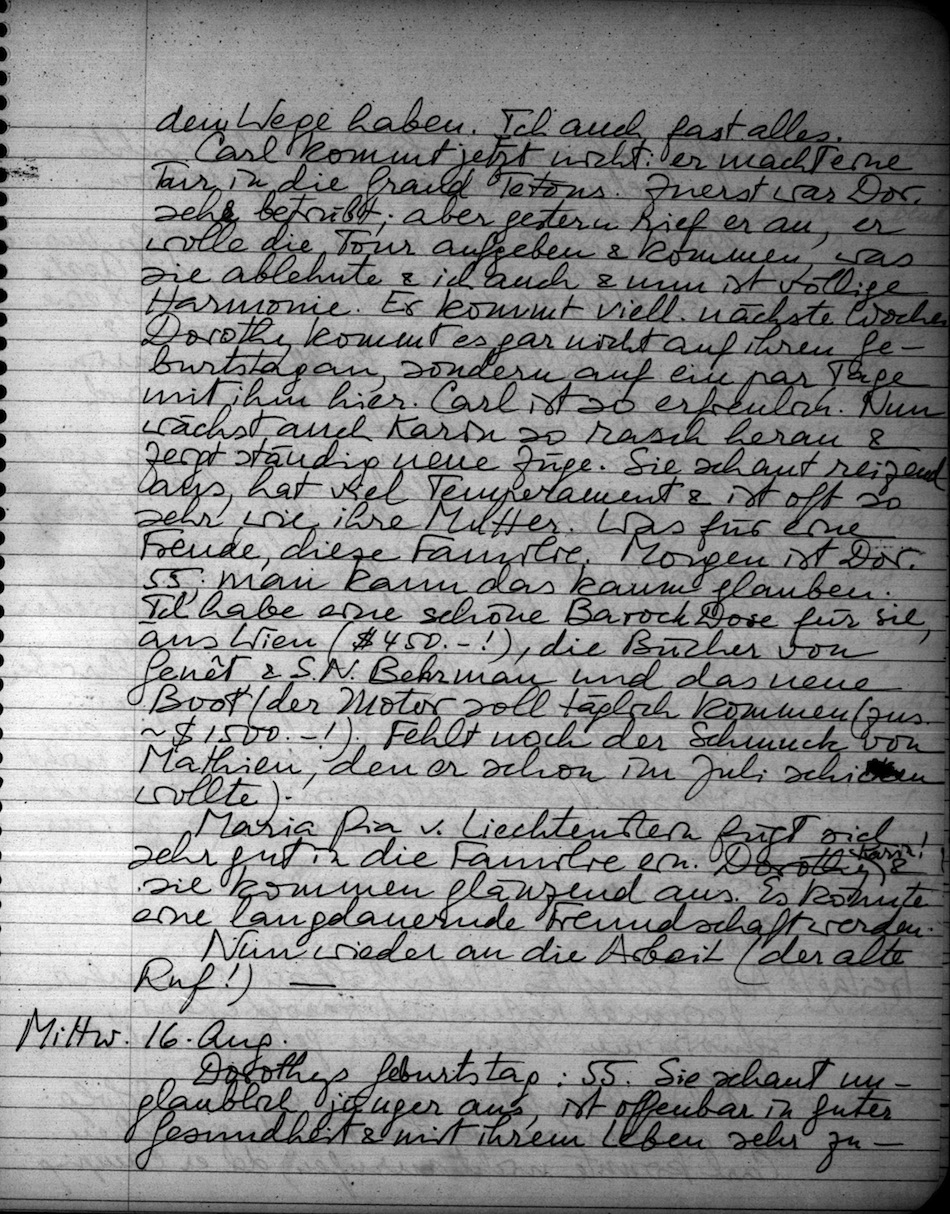 dem Wege haben. Ich auch fast alles.
Carl kommt jetzt nicht: er macht eine
Tour in die Grand Tetons. Zuerst war Dor.
sehr betrübt; aber gestern rief er an, er
wolle die Tour aufgeben & kommen, was
sie ablehnte & ich auch & nun ist völlige
Harmonie. Er kommt viell. nächste Woche
Dorothy kommt es gar nicht auf ihren Ge-
burtstag an, sondern auf ein par Tage
mit ihm hier. Carl ist so erfreulich. Nun
wächst auch Karin so rasch heran &
zeigt ständig neue Züge. Sie schaut reizend
aus, hat viel Temperament & ist oft so
sehr wie ihre Mutter. Was für eine
Freude, diese Familie. Morgen ist Dor.
55; man kann das kaum glauben.
Ich habe eine schöne Barock Dose für sie,
aus Wien ($450.-!), die Bücher von
Genêt & S.N. Behrman und das neue
Boot (der Motor soll täglich kommen (zus.
~ $1500.-!). Fehlt noch der Schmuck von
Mathieu, den er schon im Juli schicken
wollte).
Maria Pia v. Liechtenstein fügt sich
sehr gut in die Familie ein. Dorothy Karin! &
sie kommen glänzend aus. Es könnte
eine langdauernde Freundschaft werden.
Nun wieder an die Arbeit (der alte
Ruf!) —
Mittw. 16. Aug.
Dorothys Geburtstag: 55. Sie schaut un-
glaublich jünger aus, ist offenbar in guter
Gesundheit & mit ihrem Leben sehr zu-